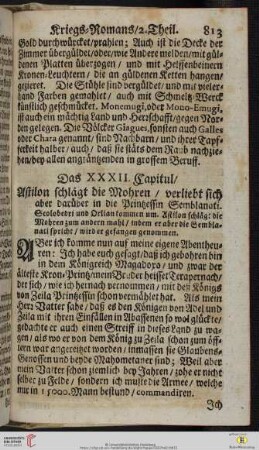 Kriegs-Romans/2. Theil. 813
Gold durchwürcket/prahlen; Auch ist die Decke der
Zimmer übergüldet/oder/wie Andere melden/mit gül-
denen Platten überzogen / und mit Helffenbeinern
Kronen-Leuchtern / die an güldenen Ketten hangen/
gezieret. Die Stühle sind vergüldet / und mit aller-
hand Farben gemahlet / auch mit Schmeltz-Werck
künstlich geschmücket. Monemugi, oder Mono-Emugi,
ist auch ein mächtig Land und Herrschafft/gegen Nor-
den gelegen. Die Völcker Giagues, sonsten auch Galles
oder Chava genannt/ sind Nachbarn/ und ihrer Tapf-
ferkeit halber / auch / daß sie stäts dem Raub nachzie-
hen/bey allen angräntzenden in grossem Beruff.
Das XXXII. Capitul/
Astilon schlägt die Mohren / verliebt sich
aber darüber in die Printzessin Semblanati.
Scolobebei und Orlian kommen um. Astilon schlägt die
Mehren zum andern mahl / indem er aber die Sembla-
nati spricht / wird er gefangen genommen.
ABer ich komme nun auf meine eigene Abentheu-
ren: Ich habe euch gesagt/daß ich gebohren bin
in dem Königreich Magadoxo / und zwar der
älteste Kron-Printz/ mein Bruder heisset Terapornach/
der sich / wie ich hernach vernommen / mit des Königs
von Zeila Printzessin schon vermählet hat. Als mein
Herr Vatter sahe / daß es den Königen von Adel und
Zeila mit ihren Einfällen in Abassenen so wol glückte/
gedachte er auch einen Streiff in dieses Land zu wa-
gen / als wo er von dem König zu Zeila schon zum öff-
tern war angereitzet worden / inmassen sie Glaubens-
Genossen und beyde Mahometaner sind; Weil aber
mein Vatter schon ziemlich bey Jahren / zohe er nicht
selber zu Felde / sondern ich muste die Armee / welche
nur in 15000. Mann bestund / commandiren.
Ich